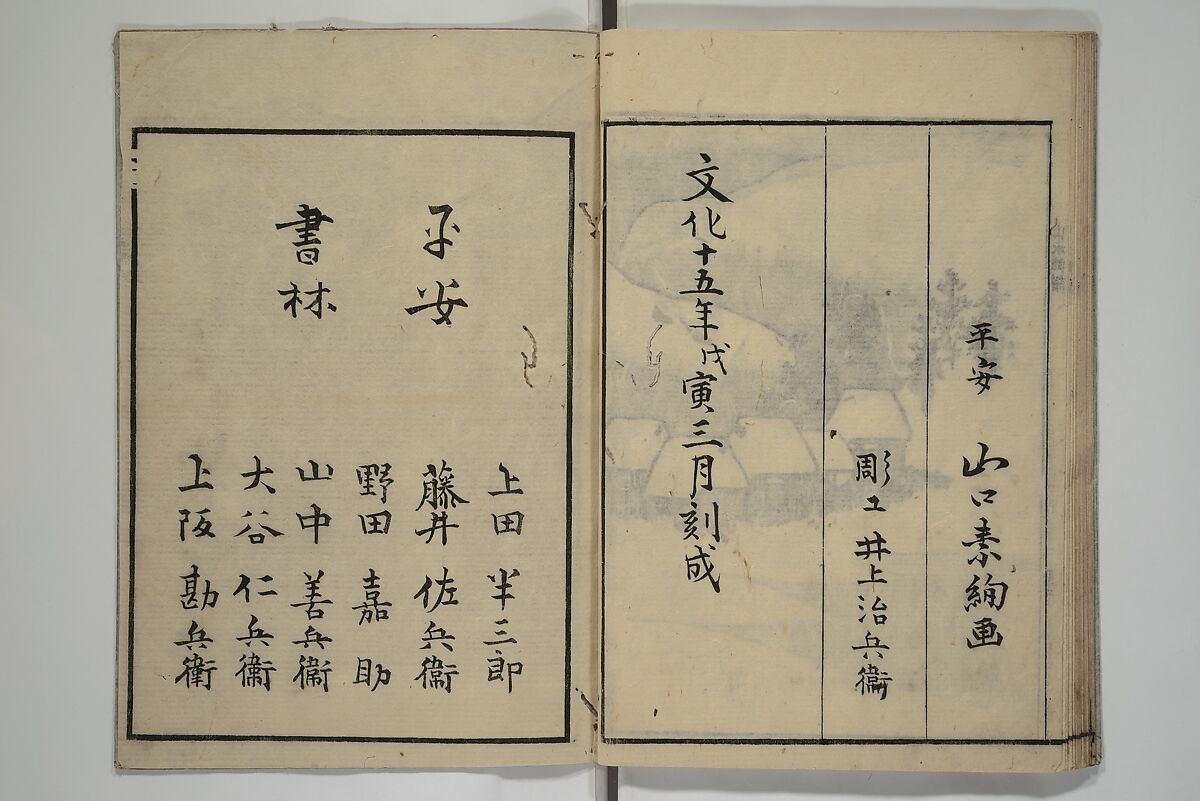 平安 山口素絢画
彫工 井上治兵衞
文化十五年戊寅三月刻成
平安
書林
上田半三郎
藤井佐兵衞
野田嘉助
山中善兵衞
大谷仁兵衞
上阪勘兵衛